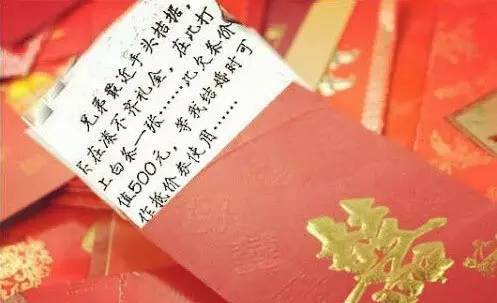 兄弟最近手头拮据，
实在凑不齐礼金，在此打
上白条一张……此欠条价
值500元，等我结婚时可
作抵价券使用……